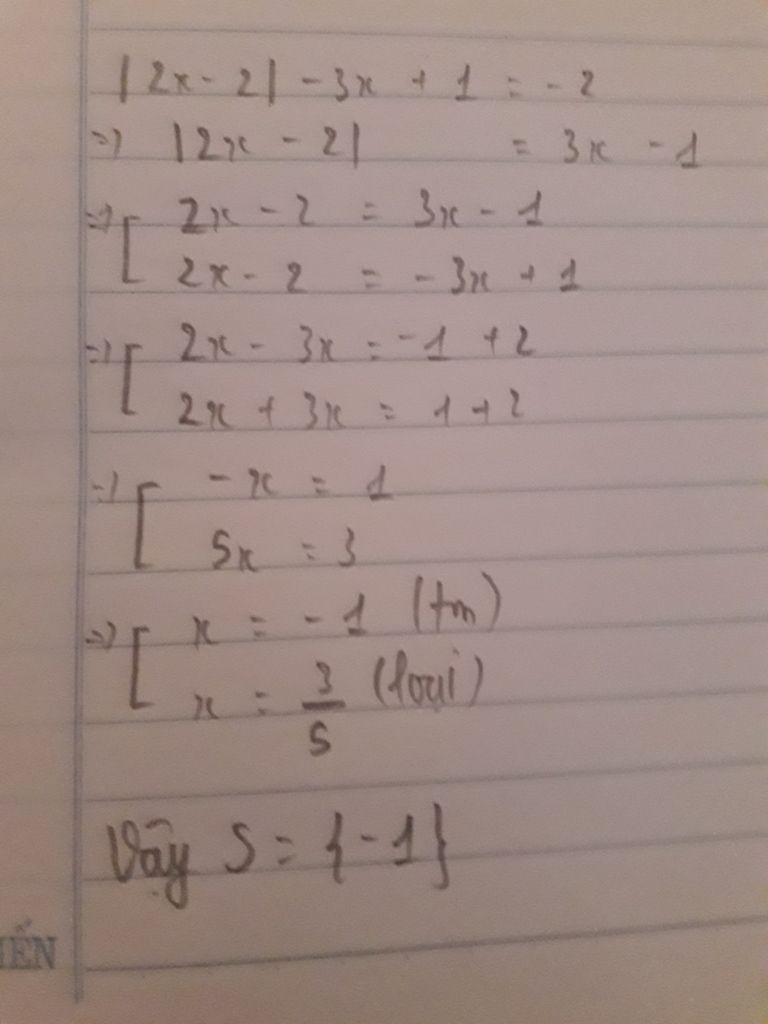 |2x - 2| - 3x + 1 = - 2
=> |2x - 2| = 3x - 1
=> [ 2x - 2 = 3x - 1
2x - 2 = - 3x + 1
=> [ 2x - 3x = -1 + 2
2x + 3x = 1 + 2
=> [ - x = 1
5x = 3
=> [ x = - 1 (tm)
x = 3/5 (loại)
Vậy S = {-1}
IẾN